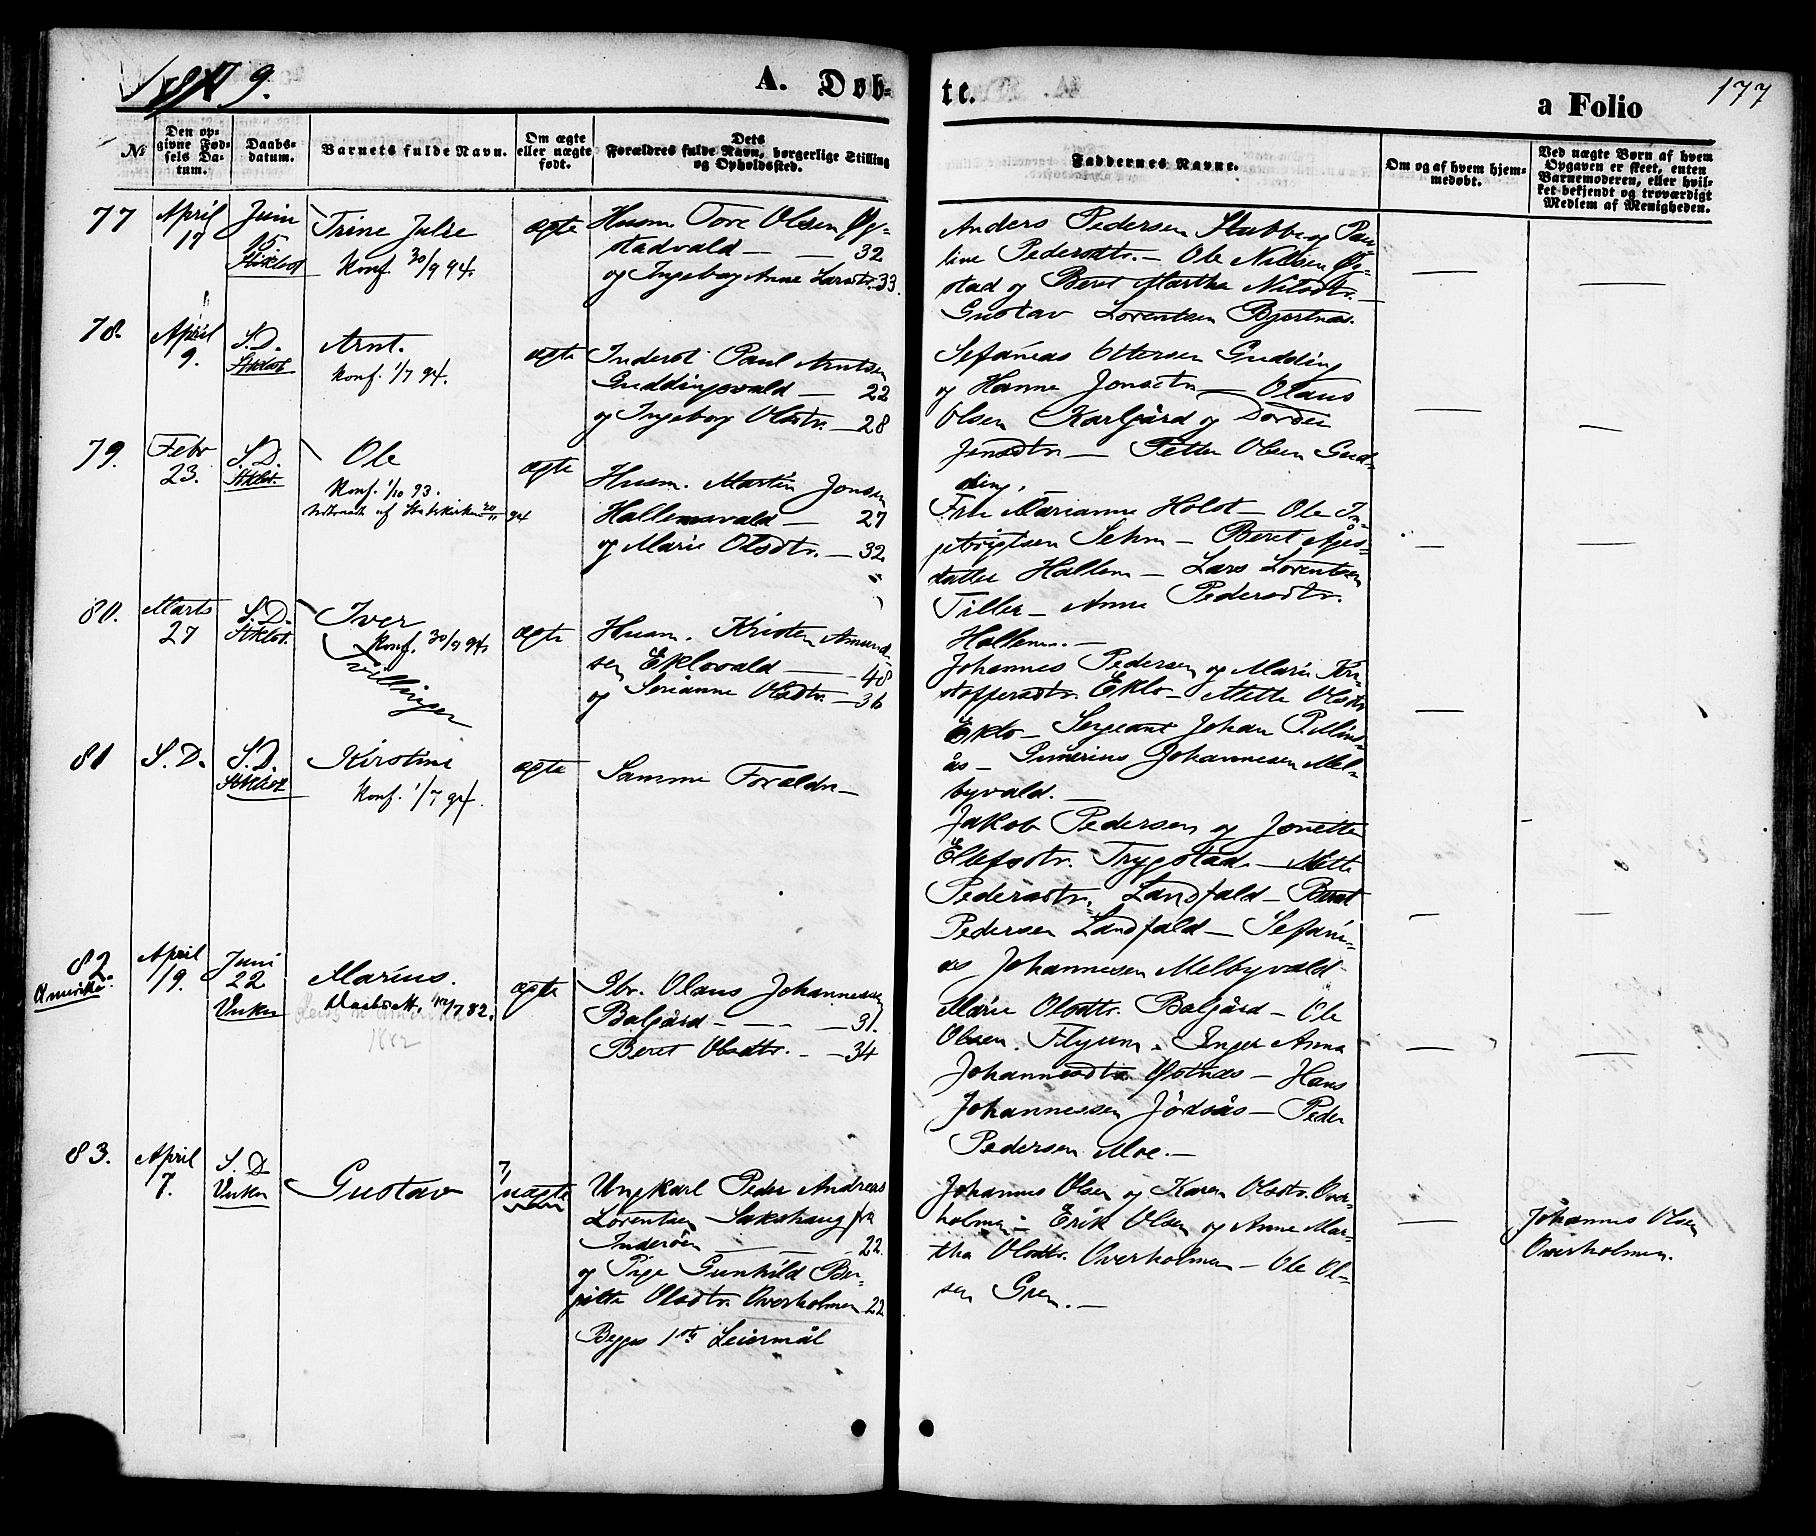 1879.
A. Døb-
te.
a Folio
177
№
Den op-
givne Fød-
sels Da-
tum.
Daabs-
datum.
Barnets fulde Navn.
Om ægte
eller uægte
født.
Dets
Forældres fulde Navn, borgerlige Stilling
og Opholdssted.
Faddernes Navne.
Om og af hvem hjem-
medøbt.
Ved uægte Børn af hvem
Opgaven er skeet, enten
Barnemoderen, eller hvil-
ket bekjendt og troværdigt
Medlem af Menigheden.
77
April
17
Juni
15.
Stiklest
Trine Julie
Konf. 30/9 94.
ægte
Husm. Tore Olsen Øg-
stadvald — — 32
og Ingeborg Anne Larsdtr. 33.
Anders Pedersen Stubbe og Pau-
line Pedersdtr. — Ole Nilsen Øg-
stad og Beret Martha Nilsdtr. —
Gustav Lorentsen Bjertnæs.
78.
April
9.
S.D.
Stiklest
Arnt.
Konf. 1/7 94.
ægte
Inderst Paul Arntsen
Guddingsvald — 22
og Ingeborg Olsdtr. — 28
Sefanias Ottersen Gudding
og Hanna Jonsdtr. — Olaus
Olsen Karlgård og Dordei
Jonsdtr. — Petter Olsen Gud-
ding.
79.
Febr
23.
S.D.
Stiklest.
Ole
Konf. 1/10 93.
ægte
Husm. Martin Jonsen
Hallemsvald — 27
og Marie Olsdtr. — 32
Frue Marianne Holst — Ole In-
gebrigtsen Sehm — Beret Ages-
datter Hallem — Lars Lorentsen
Tiller — Anne Pedersdtr.
Hallem. —
80.
Marts
27
S.D.
Stiklest.
Iver
Konf. 30/9 94.
Tvillinger
ægte
Husm. Kristen Amund-
sen Eklovald — 48
og Serianne Olsdtr. — 36
Johannes Pedersen og Marie Kri-
stoffersdtr. Eklo — Mette Olsdtr.
Eklo — Sergeant Johan P. Mins-
ås — Johannesen Mel-
byvald. —
81
S.D.
S.D.
Stiklest
Kirstine
Konf. 1/7 94.
ægte
Samme Forældre —
Jakob Pedersen og Jonetta
Ellefsdtr. Trygstad. — Mette
Pedersdtr. Landfald — Bernt
Pedersen Landfald — Sefani-
as Johannesen Melbyvald
82.
Amerika.
April
19.
Juni
22
Vuku
Marius.
1882
ægte
Gbr. Olaus Johannessen
Balgård — — — 31.
Beret Olsdtr. — — 34
Marie Olsdtr. Balgård — Ole
Olsen Flyum. Inger Anna
Johannesdtr. Østnæs — Hans
Johannessen Jördsås — Peder
Pedersen Moe. —
83.
April
7.
S.D.
Vuku
Gustav
uægte
Ungkarl Peder Andreas
Lorentsen Sakshaug fra
Inderøen — 22.
og Pige Gunhild Ber-
gitta Olsdtr. Overholmen 22
Begges 1ste Leiermål
Johannes Olsen og Karen Olsdtr. Over-
holmen — Erik Olsen og Anne Mar-
tha Olsdtr. Overholmen — Ole Ol-
sen Gren. —
Johannes Olsen
Overholmen.